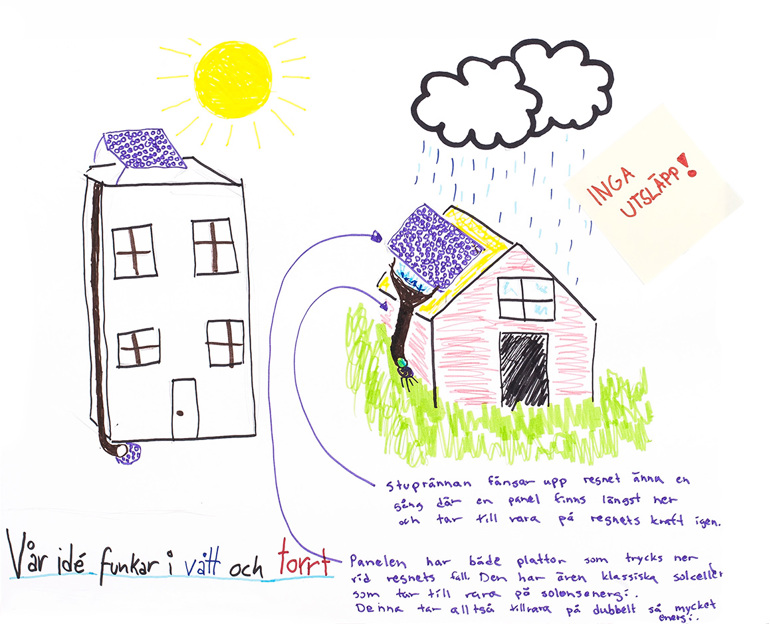 INGA
UTSLÄPP!
stuprännan fångar upp regnet änna en
gång där en panel finns längst ner
och tar till rara på regnets kraft igen.
Vår idé funkar i vått och torrt
Panelen har både plattor som trycks ner
vid regnets fall. Den har även klassiska solceller
som tar till rara på solensenergi.
Denna tar alltså tillrara på dubbelt så mycket
energi.